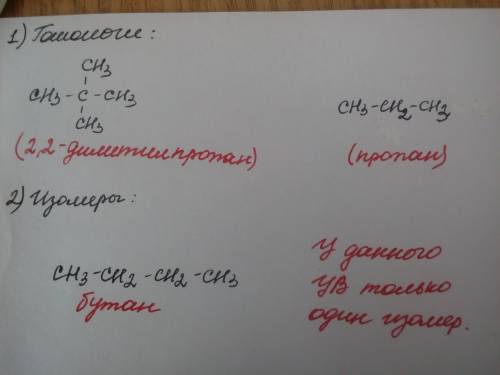 1) Гомологи:
CH3
CH3-C-CH3
CH3
(2,2-диметилпропан)
CH3-CH2-CH3
(пропан)
2) Изомеры:
CH3-CH2-CH2-CH3
бутан
У данного
УВ только
один изомер.